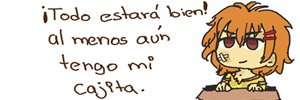 ¡Todo estará bien!
al menos aún
tengo mi
cajita.